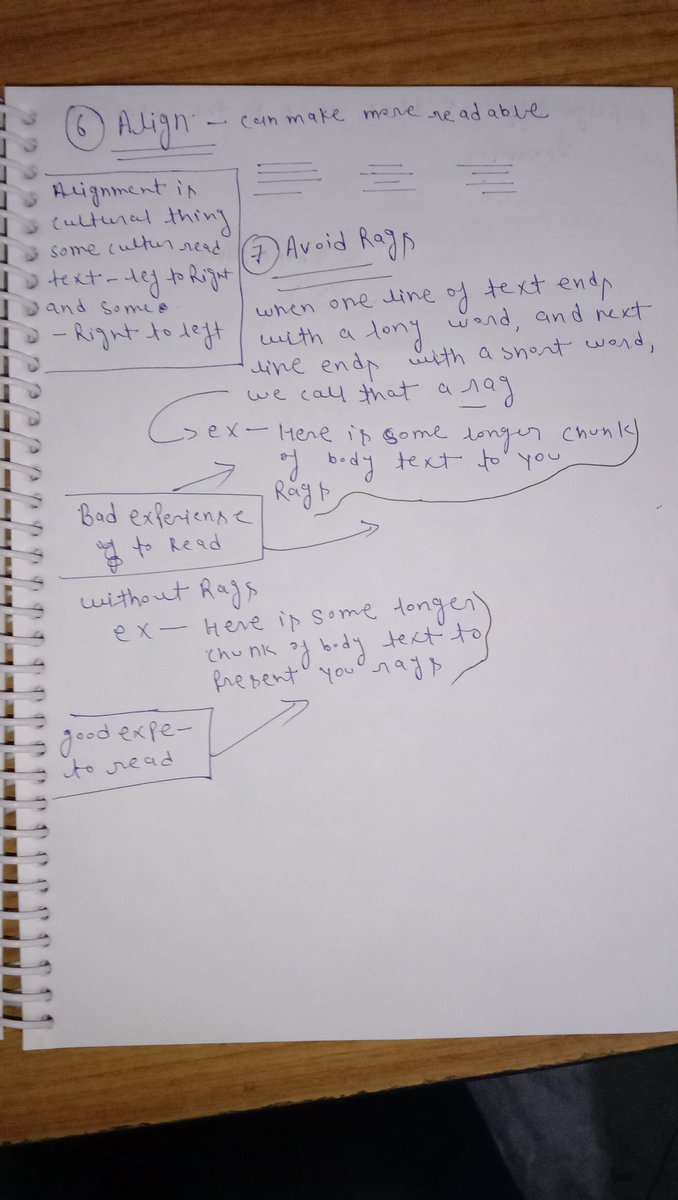 6 Align - can make more readable
Alignment is
cultural thing
some cultur read
text - lef to Right
and some
- Right to left
7 Avoid Rags
when one line of text ends
with a long word, and next
line ends with a short word,
we call that a rag
ex - Here is some longer chunk
of body text to you
Rags
Bad experiense
to Read
without Rags
ex - Here is some longer
chunk of body text to
Present you rags
good expe-
to read